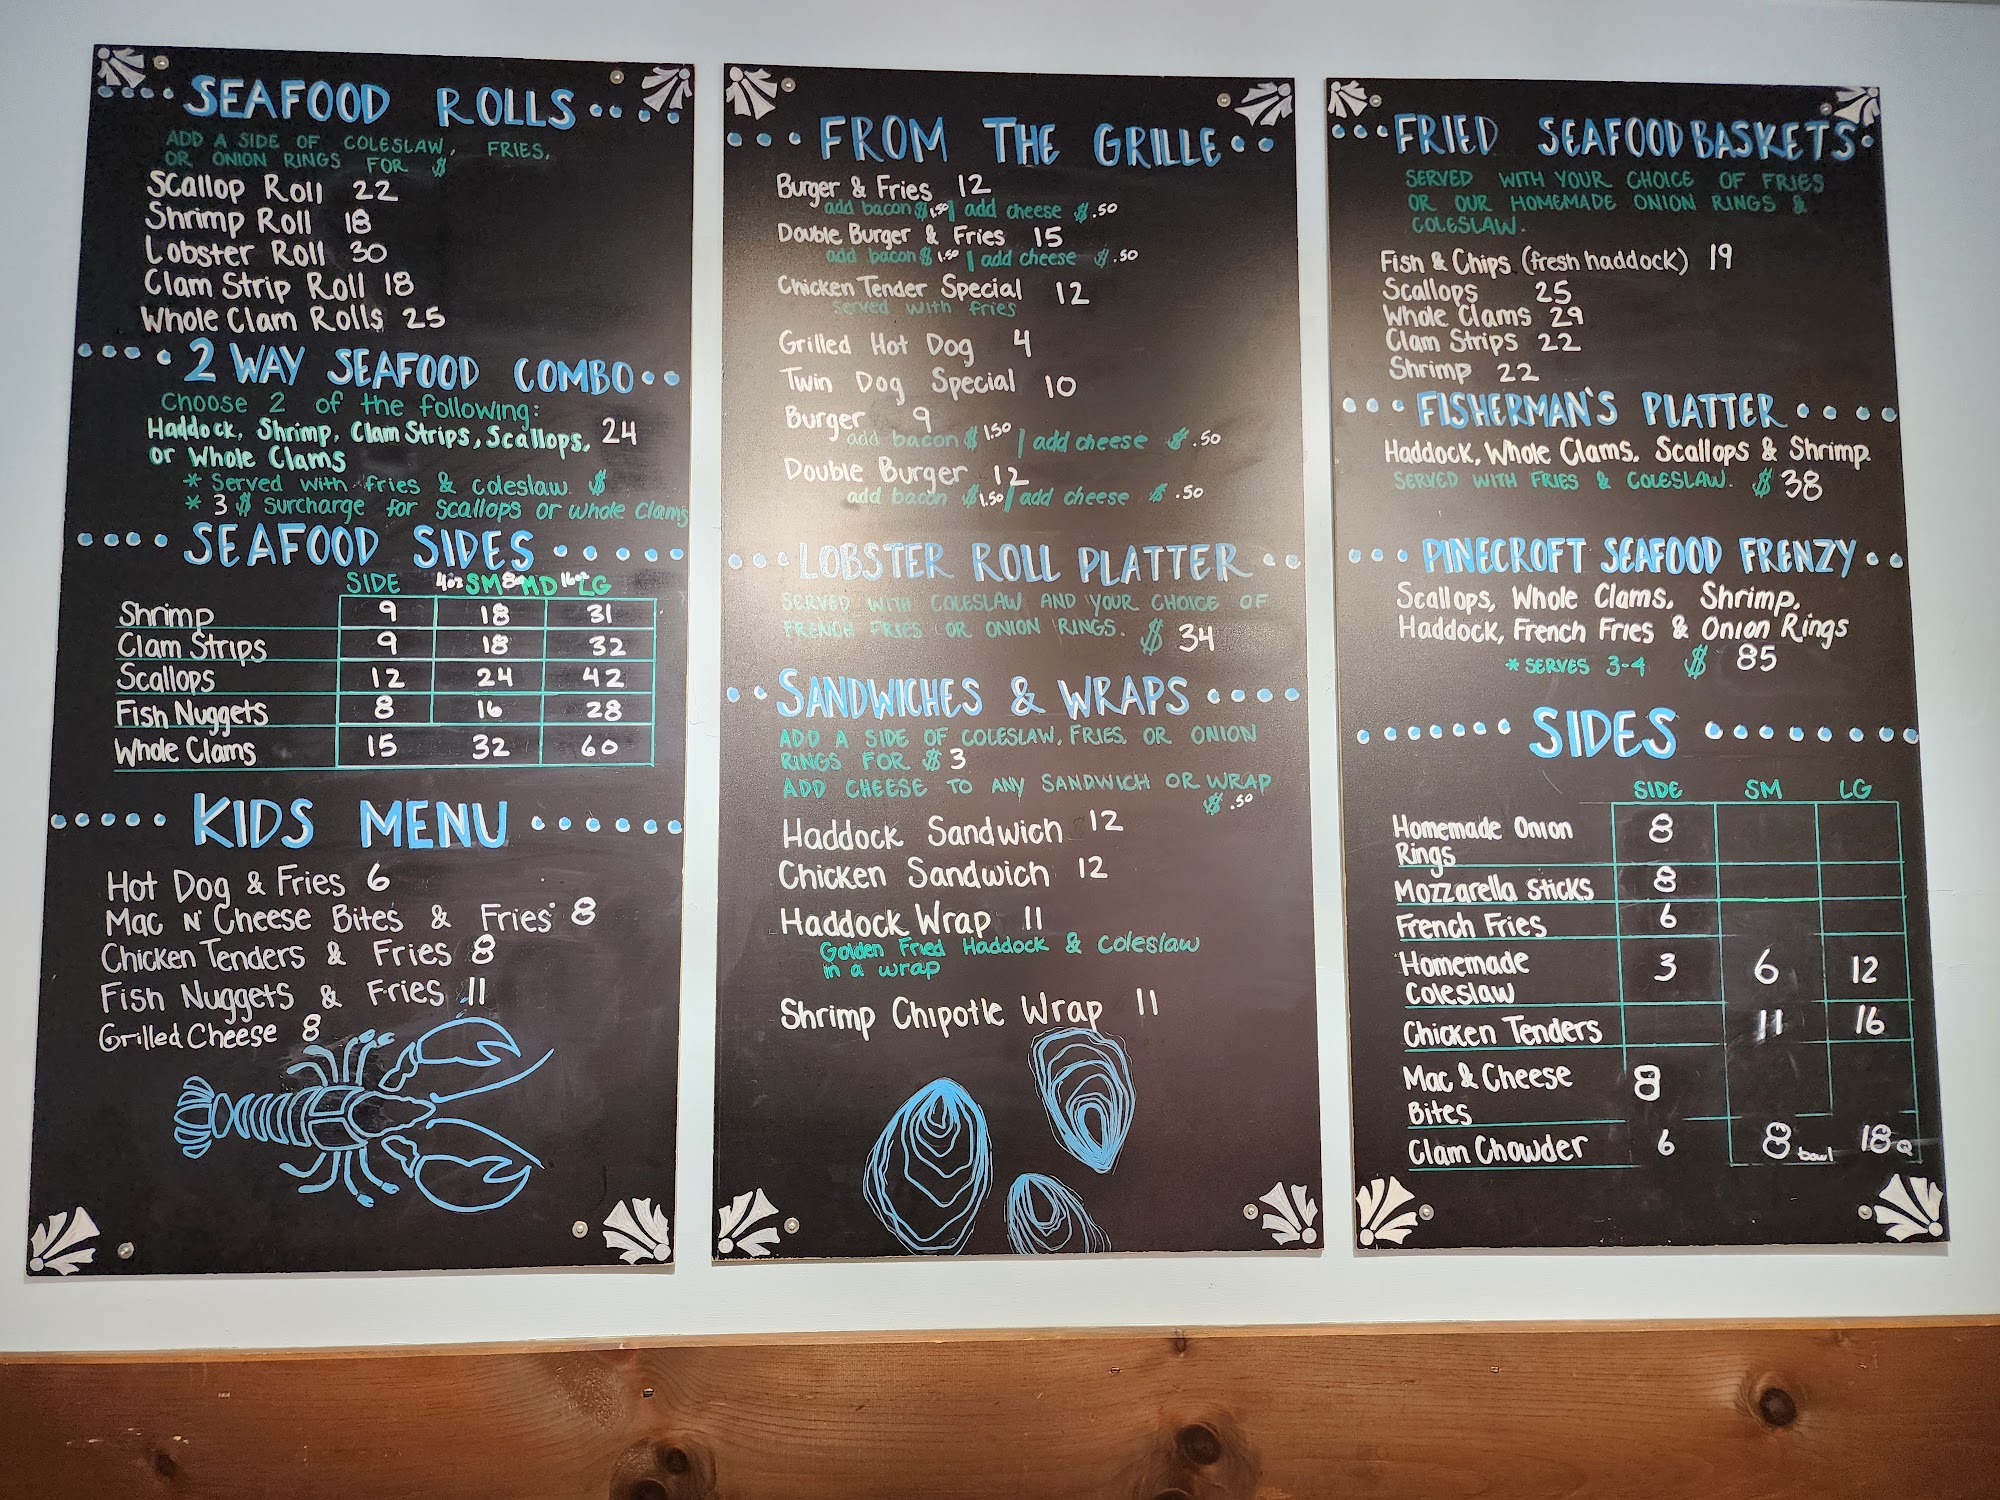 SEAFOOD ROLLS
ADD A SIDE OF COLESLAW, FRIES,
OR ONION RINGS FOR $
Scallop Roll 22
Shrimp Roll 18
Lobster Roll 30
Clam Strip Roll 18
Whole Clam Rolls 25
2 WAY SEAFOOD COMBO
Choose 2 of the following:
Haddock, Shrimp, Clam Strips, Scallops, 24
or Whole Clams
* Served with fries & coleslaw. $
* 3 $ Surcharge for Scallops or Whole Clams
SEAFOOD SIDES
SIDE 4oz SM 8oz MD 16oz LG
Shrimp 9 18 31
Clam Strips 9 18 32
Scallops 12 24 42
Fish Nuggets 8 16 28
Whole Clams 15 32 60
KIDS MENU
Hot Dog & Fries 6
Mac N' Cheese Bites & Fries 8
Chicken Tenders & Fries 8
Fish Nuggets & Fries 11
Grilled Cheese 8
FROM THE GRILLE
Burger & Fries 12
add bacon $1.50 | add cheese $.50
Double Burger & Fries 15
add bacon $1.50 | add cheese $.50
Chicken Tender Special 12
served with fries
Grilled Hot Dog 4
Twin Dog Special 10
Burger 9
add bacon $1.50 | add cheese $.50
Double Burger 12
add bacon $1.50 | add cheese $.50
LOBSTER ROLL PLATTER
SERVED WITH COLESLAW AND YOUR CHOICE OF
FRENCH FRIES OR ONION RINGS. $ 34
SANDWICHES & WRAPS
ADD A SIDE OF COLESLAW, FRIES, OR ONION
RINGS FOR $ 3
ADD CHEESE TO ANY SANDWICH OR WRAP
$.50
Haddock Sandwich 12
Chicken Sandwich 12
Haddock Wrap 11
Golden Fried Haddock & Coleslaw
in a wrap
Shrimp Chipotle Wrap 11
FRIED SEAFOOD BASKETS
SERVED WITH YOUR CHOICE OF FRIES
OR OUR HOMEMADE ONION RINGS &
COLESLAW.
Fish & Chips (fresh haddock) 19
Scallops 25
Whole Clams 29
Clam Strips 22
Shrimp 22
FISHERMAN'S PLATTER
Haddock, Whole Clams, Scallops & Shrimp.
SERVED WITH FRIES & COLESLAW. $ 38
PINECROFT SEAFOOD FRENZY
Scallops, Whole Clams, Shrimp,
Haddock, French Fries & Onion Rings
* SERVES 3-4 $ 85
SIDES
SIDE SM LG
Homemade Onion
Rings 8
Mozzarella Sticks 8
French Fries 6
Homemade
Coleslaw 3 6 12
Chicken Tenders 11 16
Mac & Cheese
Bites 8
Clam Chowder 6 8 bowl 18 Q